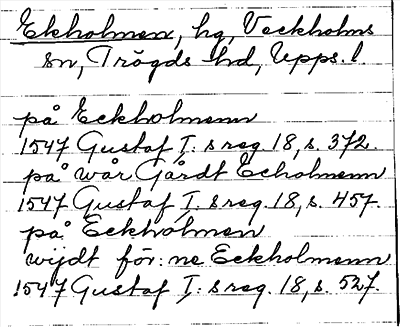 Ekholmen, hg, Veckholms
sn, Trögds hd, Upps. l.
på Eckholmenn
1547 Gustaf I: s reg. 18, s. 372
på wår Gårdt Echolmenn
1547 Gustaf I: s reg. 18, s. 457.
på Eckholmen
wijdt för: ne Eckholmenn
1547 Gustaf I: s reg. 18, s. 527.